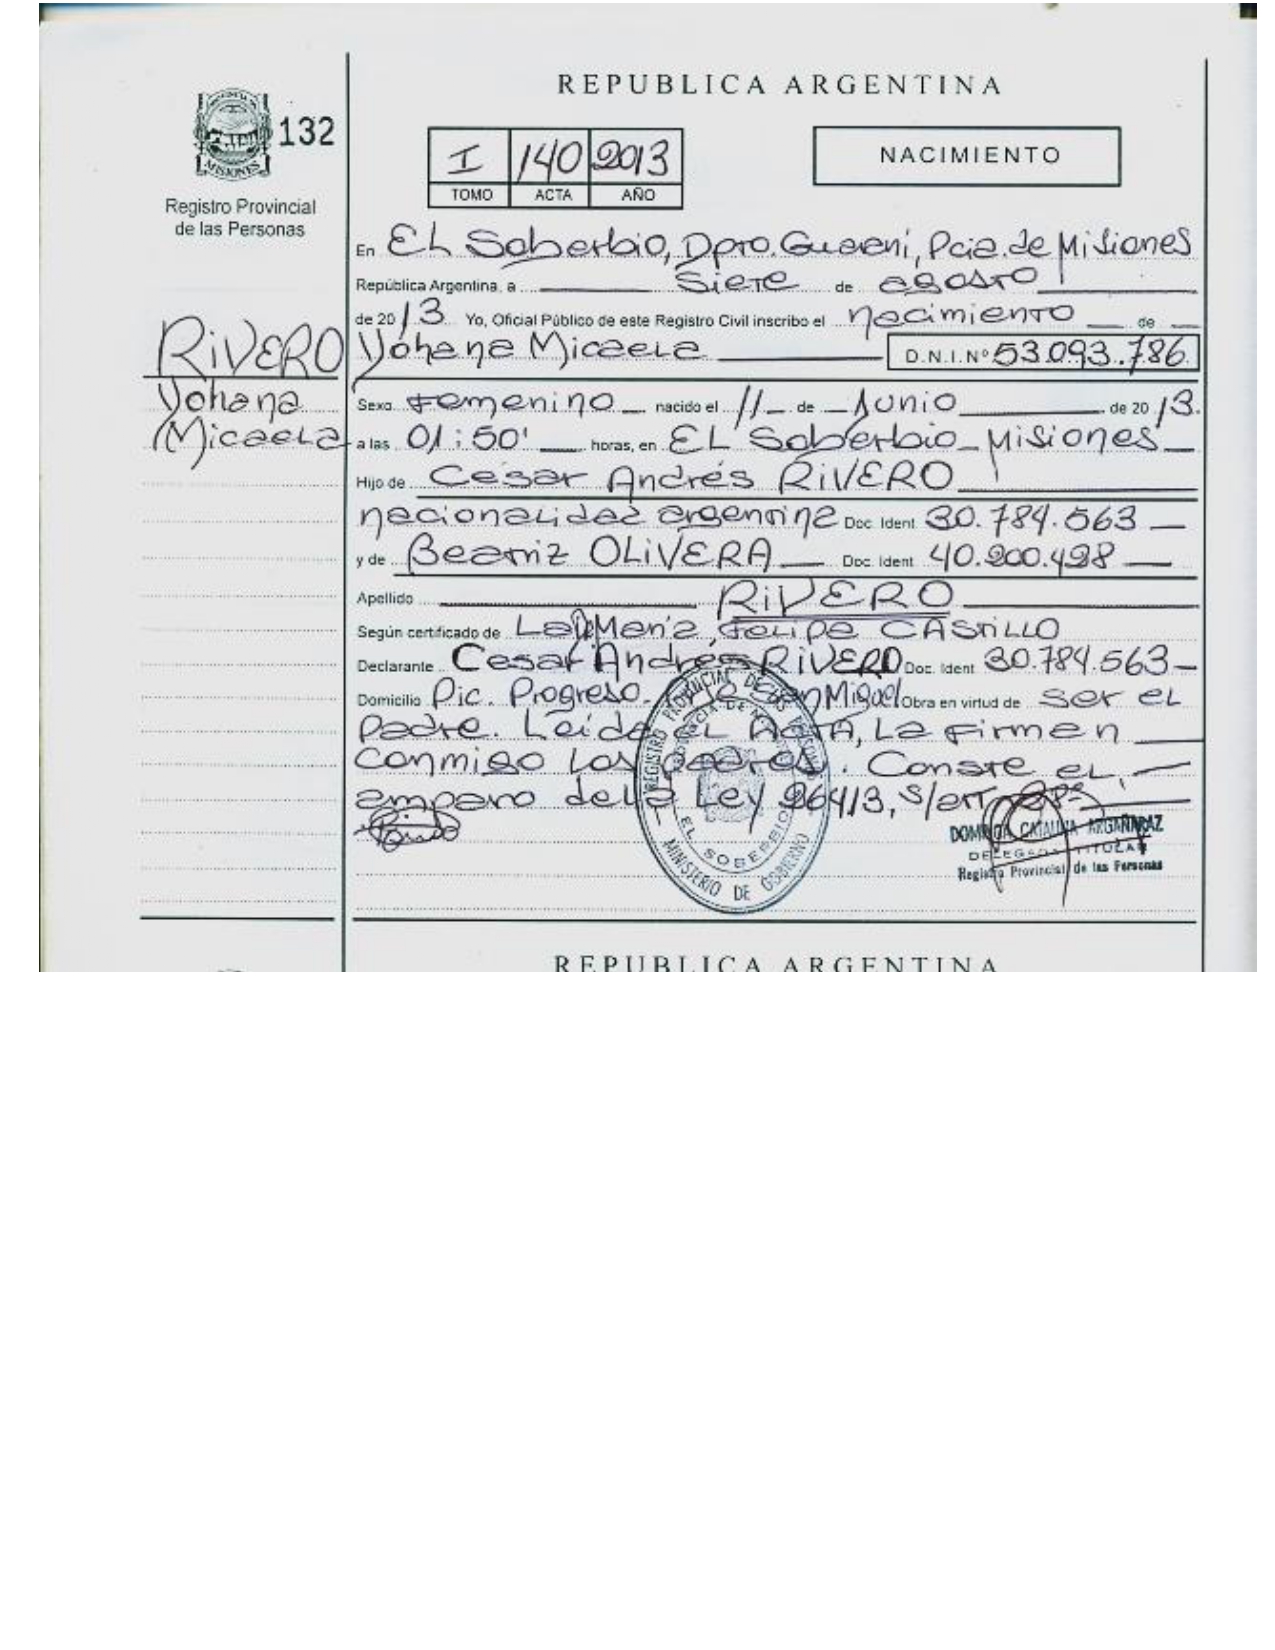 REPUBLICA ARGENTINA
132
MISIONES
Registro Provincial
de las Personas
I 140 2013
TOMO ACTA AÑO
NACIMIENTO
En EL Soberbio, Dpto. Guaraní, Pcia. de Misiones
República Argentina, a Siete de agosto
de 2013 Yo, Oficial Público de este Registro Civil inscribo el nacimiento de
Yohana Micaela D.N.I. Nº 53.093.786
RIVERO
Yohana
Micaela
Sexo Femenino nacido el 11 de Junio de 2013.
a las 01:50' horas, en EL Soberbio - Misiones
Hijo de Cesar Andrés RIVERO
nacionalidad argentina Doc. Ident 30.784.563
y de Beatriz OLIVERA Doc. Ident 40.200.498
Apellido RIVERO
Según certificado de Felipe CASTILLO
Declarante Cesar Andrés RIVERO Doc. Ident 30.784.563
Domicilio Pic. Progreso San Miguel Obra en virtud de ser el
Padre. Leida el Acta, la firman
conmigo los padres. Conste el
amparo de la Ley 26413, s/art
REGISTRO PROVINCIAL DE LAS PERSONAS
EL SOBERBIO
MINISTERIO DE GOBIERNO
CATALINA ARGAÑARAZ
DELEGADA TITULAR
Registro Provincial de las Personas
REPUBLICA ARGENTINA